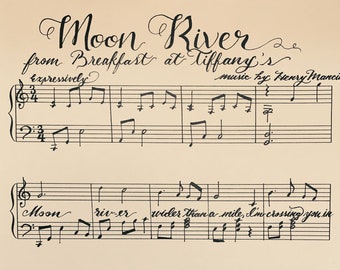 Moon River
from Breakfast at Tiffany's
Expressively
music by Henry Manci
3 4
3 4
Moon river wider than a mile, I'm crossing you in